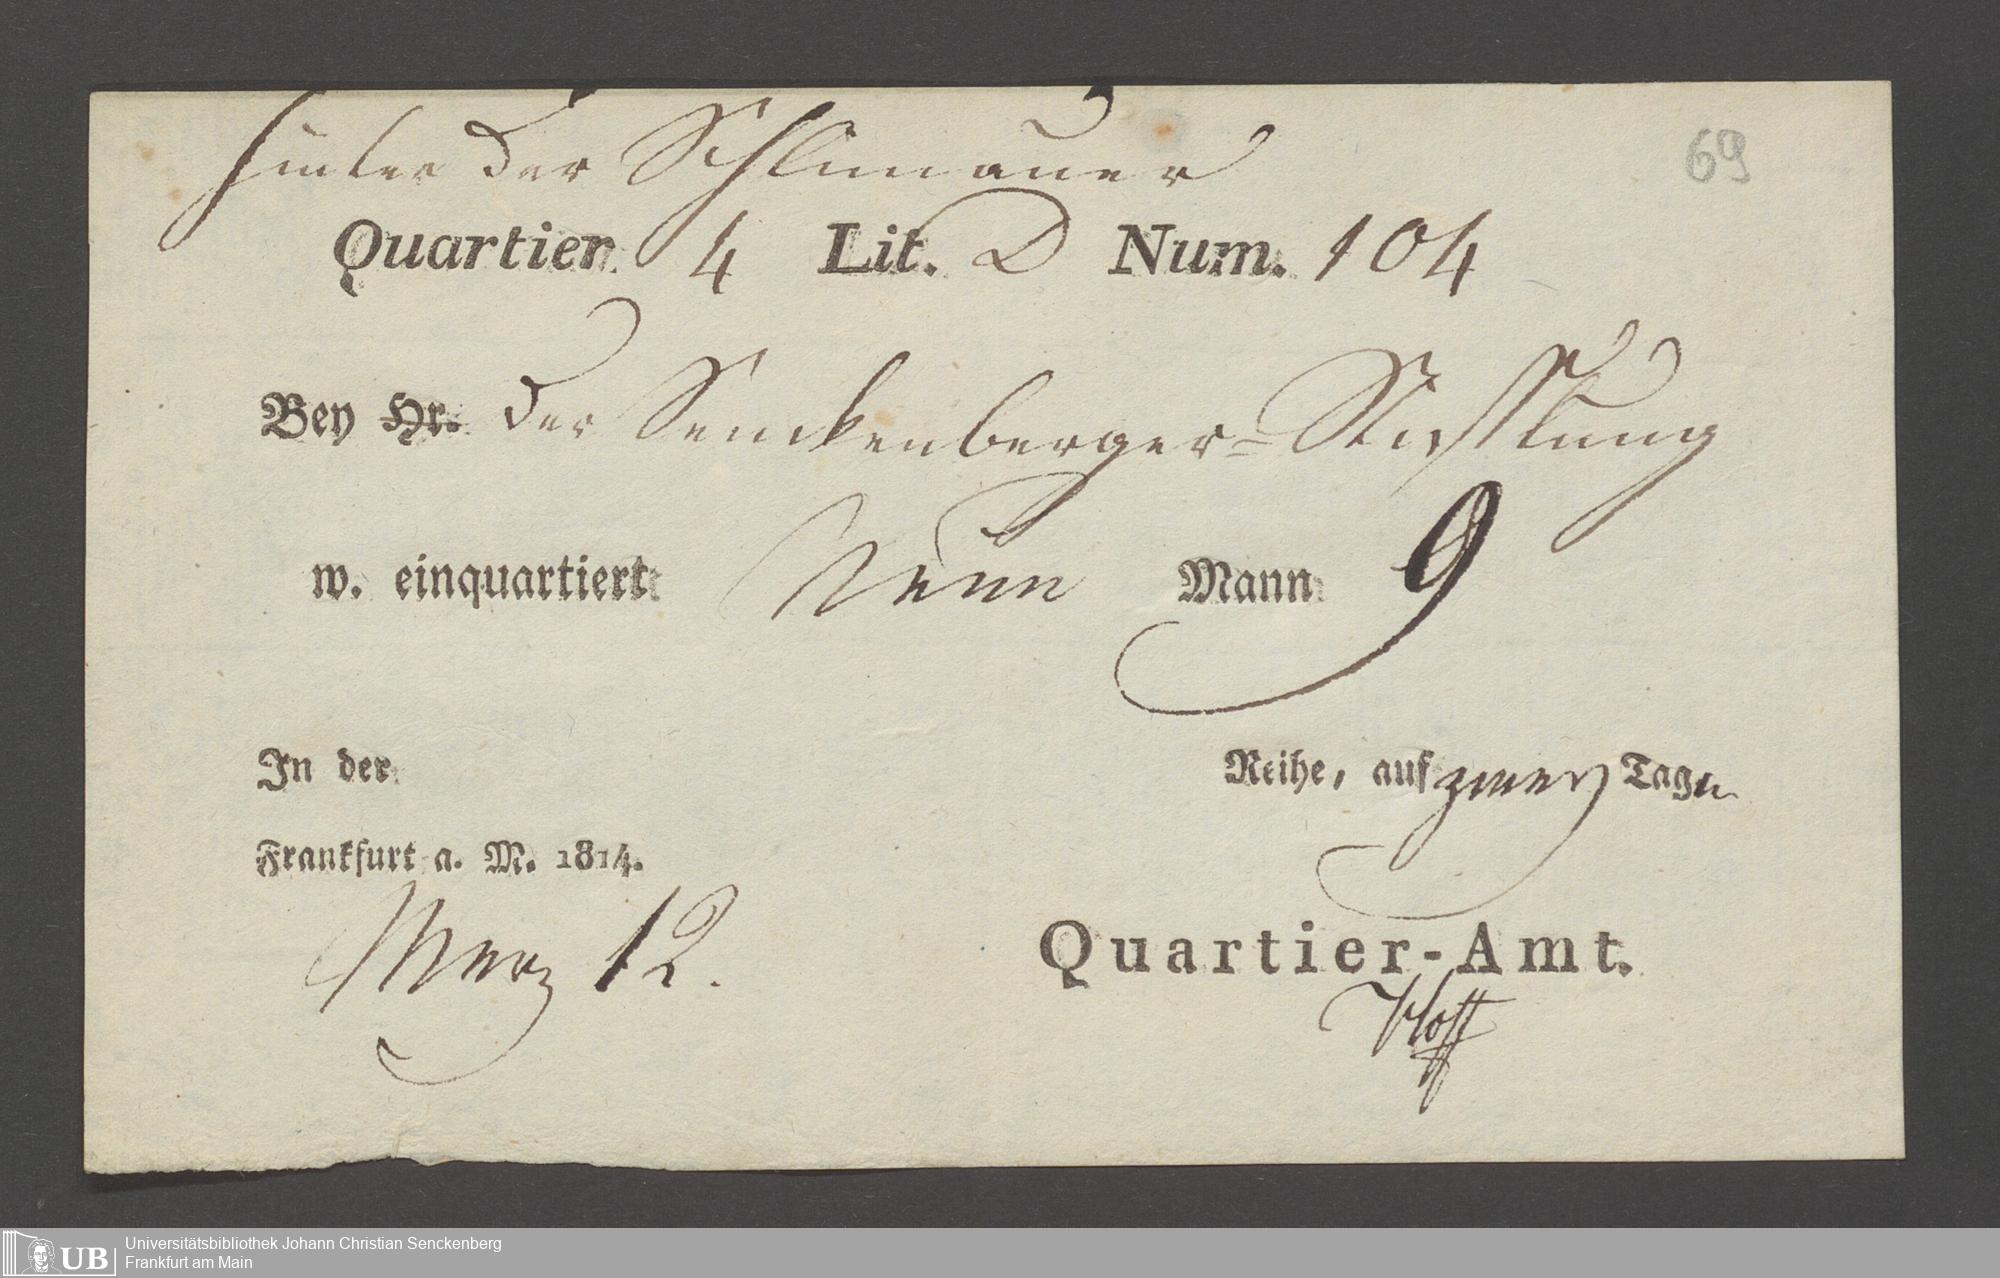 hinter der Schlimauer
69
Quartier 4 Lit. D Num. 104
Bey Hr. der Senckenberger-Stifftung
w. einquartiert Neun Mann 9
In der Reihe, auf zwey Tage
Frankfurt a. M. 1814.
Merz 12.
Quartier-Amt.
UB
Universitätsbibliothek Johann Christian Senckenberg
Frankfurt am Main